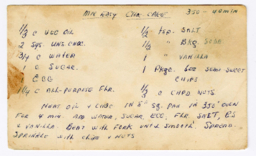 MIX EASY CHOC CAKE 350 - 40 MIN
1/3 C VEG OIL 1/2 tsp. SALT
2 SQS. UNS. CHOC. 1/2 " Bkg. SODA
3/4 C WATER 1 " VANILLA
1 C SUGAR 1 Pkge. SEMI SWEET
EGG CHIPS
1 1/4 C ALL-PURPOSE FLR. 1/3 C CHPD NUTS
OIL & CUBE IN 8" SQ. PAN IN 350° OVEN
FOR 4 MIN. ADD WATER, SUGAR, EGG, FLR, SALT, BS
& VANILLA. BEAT WITH FORK UNTIL SMOOTH. SPREAD
SPRINKLE WITH CHIPS & NUTS